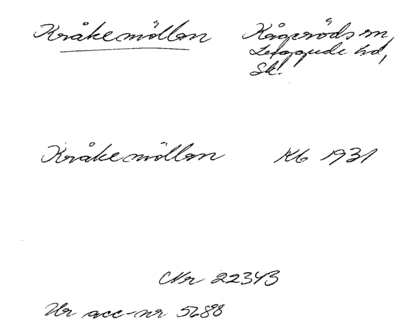 Kråkemöllan Kågeröds sn,
Luggude hd,
Sk.
Kråkemöllan Kb 1931
Nr 22343
Ur acc-nr 5688